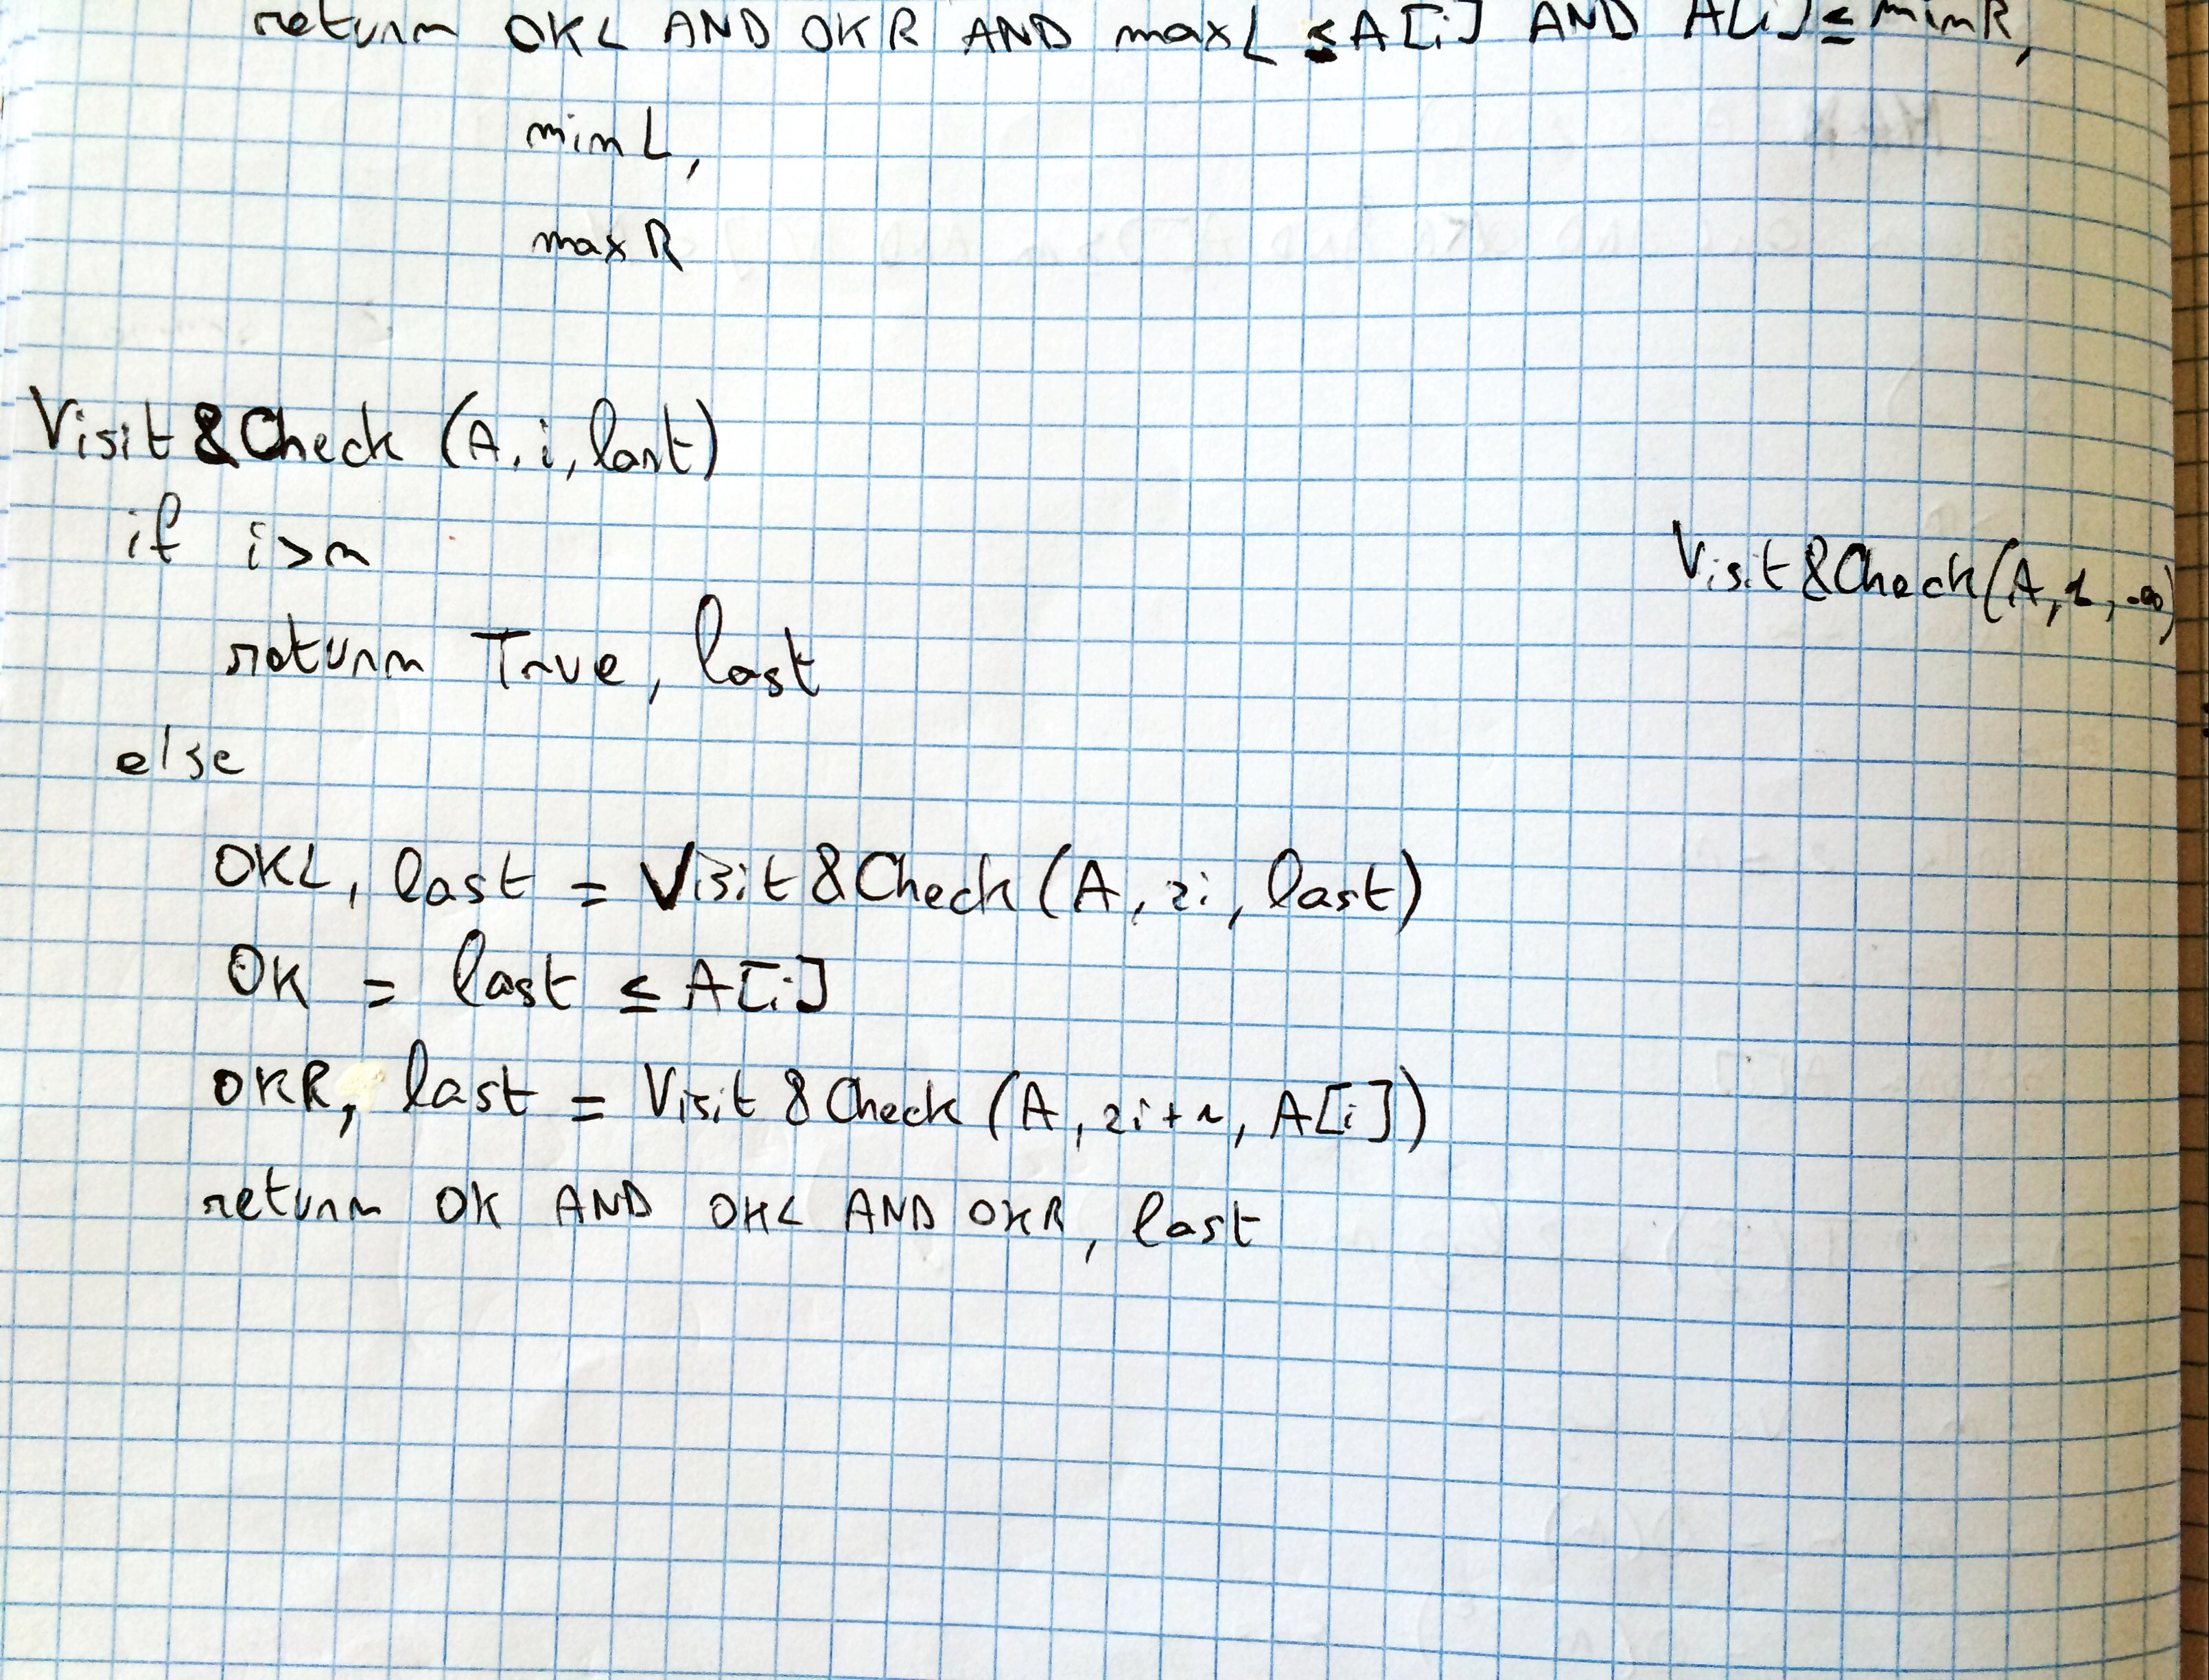 return OKL AND OKR AND maxL ≤ A[i] AND A[i] ≤ minR,
minL,
maxR
Visit&Check (A, i, last)
if i>n
Visit&Check(A, 1, -∞)
return True, last
else
OKL, last = Visit&Check (A, 2i, last)
OK = last ≤ A[i]
OKR, last = Visit&Check (A, 2i+1, A[i])
return OK AND OKL AND OKR, last